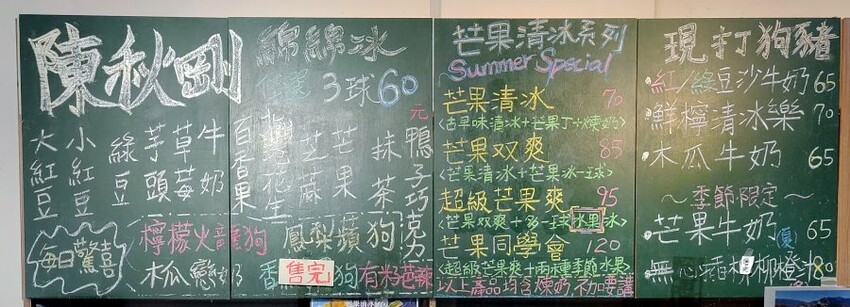 陳秋剛
綿綿冰
任選 3球60元
大紅豆
小紅豆
綠豆
芋頭
草莓
牛奶
百香果
花生
芝麻
芒果
抹茶
鴨子巧克力
每日驚喜
檸檬火龍狗
鳳梨蘋狗
木瓜戀奶
售完
有籽芭辣
芒果清冰系列
Summer Special
芒果清冰 70
<古早味清冰+芒果丁+煉奶>
芒果双爽 85
<芒果清冰+芒果冰一球>
超級芒果爽 95
<芒果双爽+多一球水果冰>
芒果同學會 120
<超級芒果爽+兩種季節水果>
以上產品均含煉奶
現打狗豬
紅/綠豆沙牛奶 65
鮮檸清冰樂 70
木瓜牛奶 65
~季節限定~
芒果牛奶 65
80